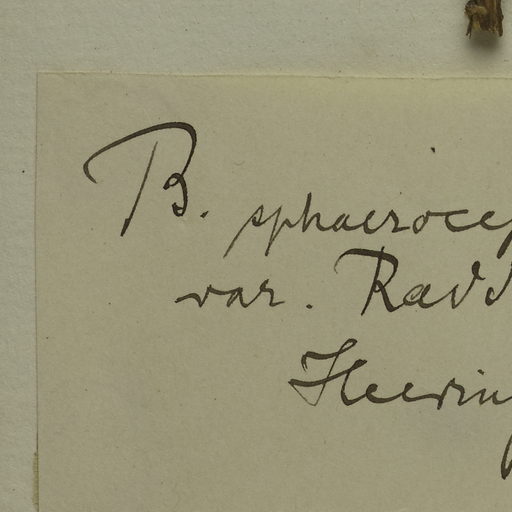 B. sphaeroce
var. Radd
Heering